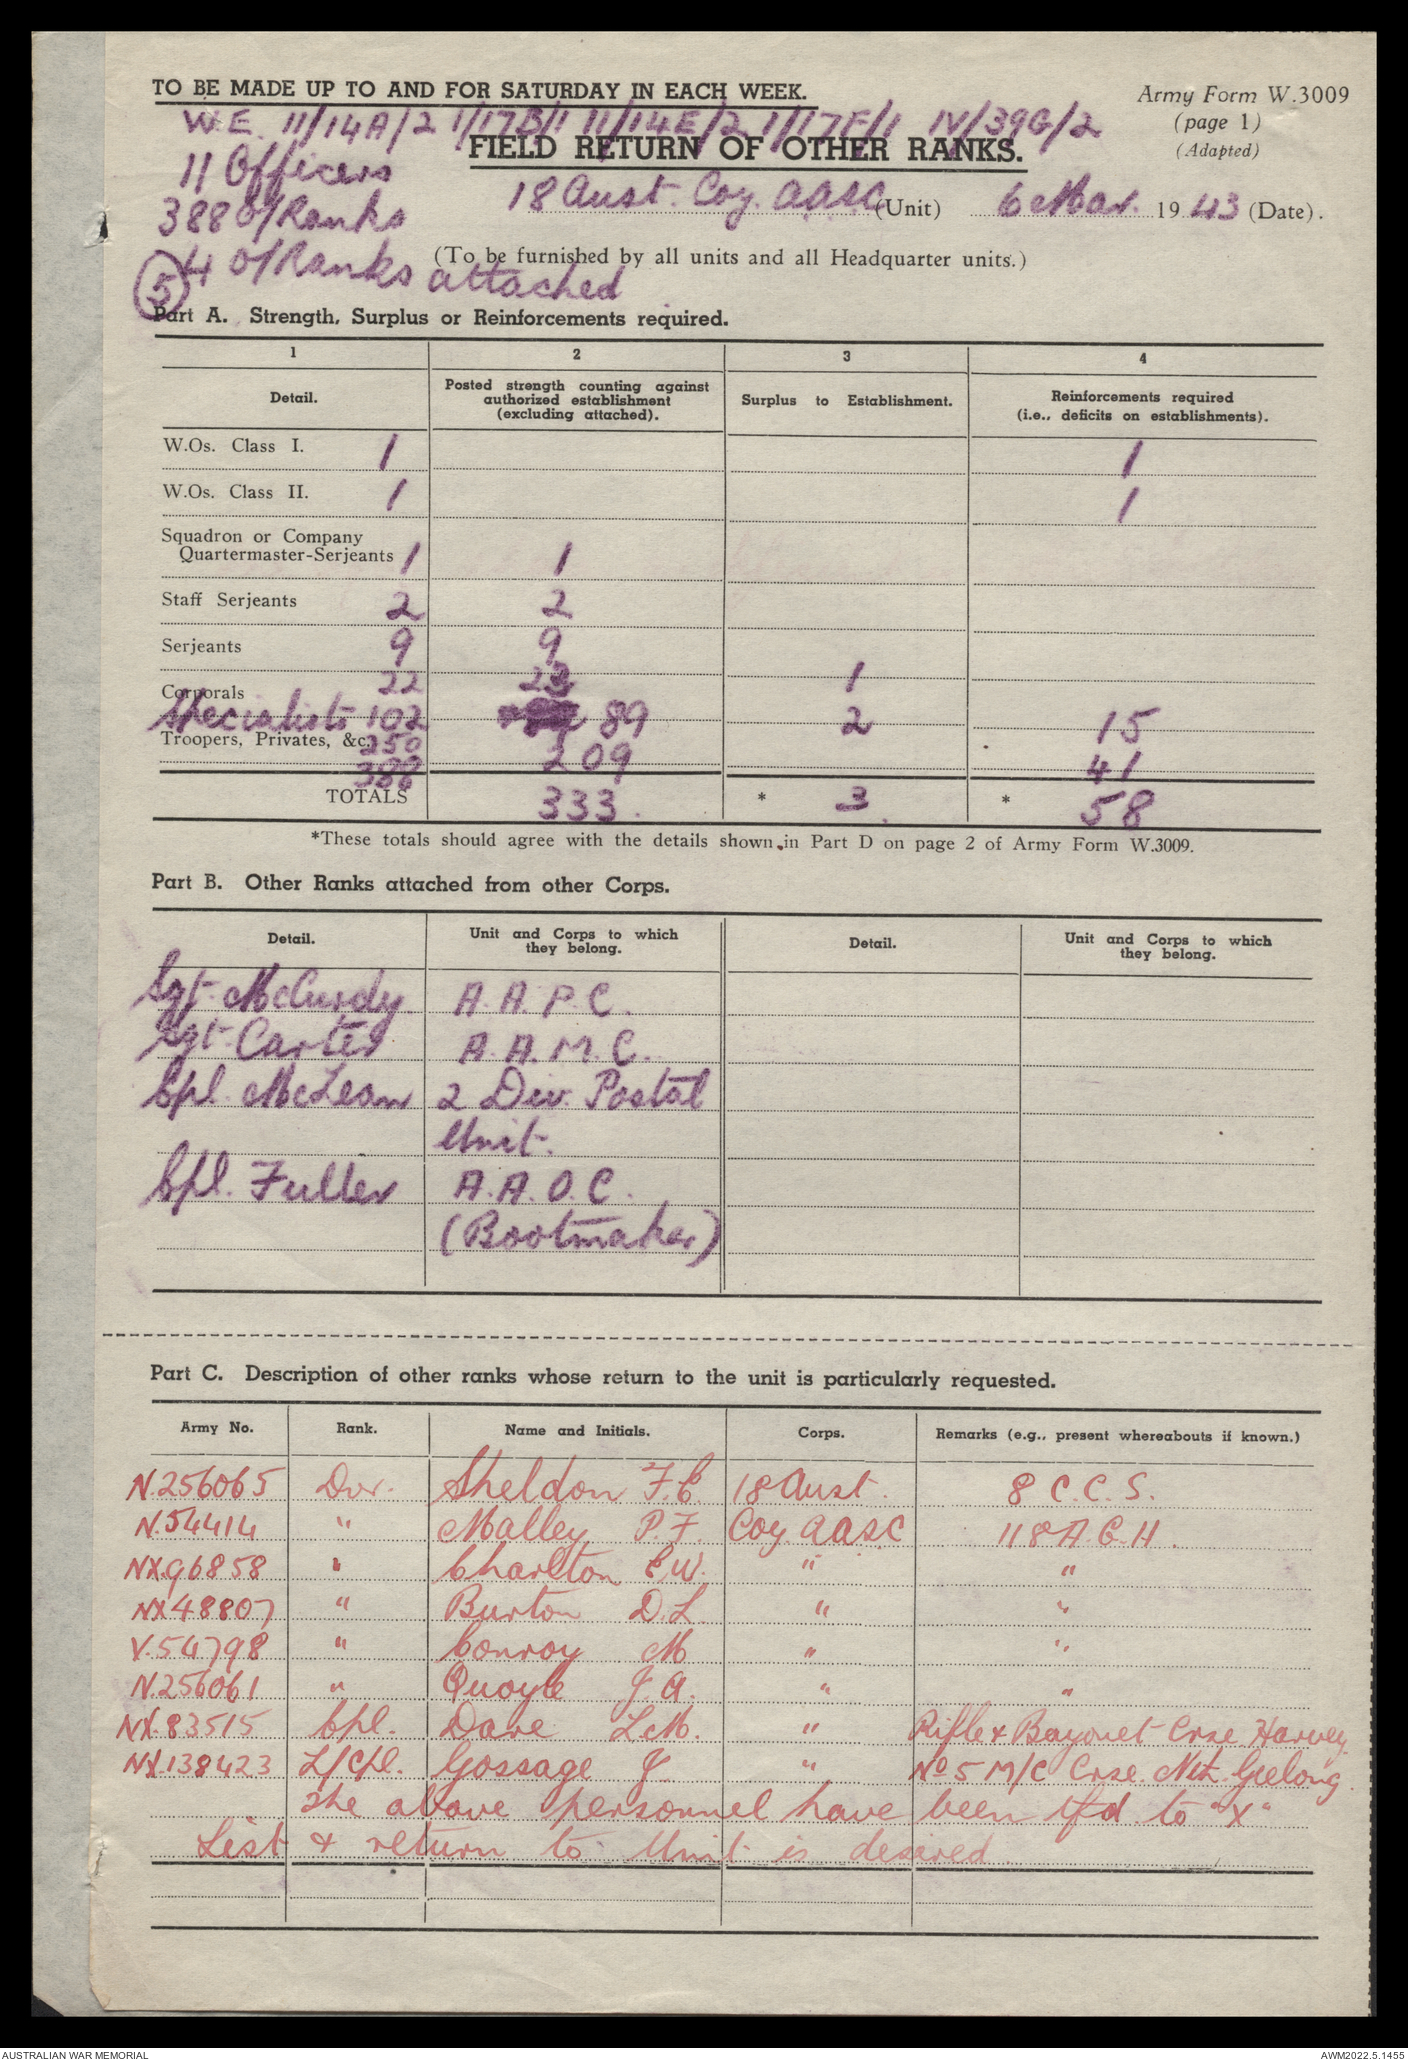 TO BE MADE UP TO AND FOR SATURDAY IN EACH WEEK.
Army Form W.3009
(page 1)
(Adapted)
W.E. 11/14A/2 1/17B/1 11/14E/2 1/17F/1 IV/39G/2
FIELD RETURN OF OTHER RANKS.
11 Officers
388 O/Ranks
18 Aust. Coy. AASC (Unit) 6 Mar. 1943 (Date).
4 O/Ranks attached
(To be furnished by all units and all Headquarter units.)
5
Part A. Strength, Surplus or Reinforcements required.
1 2 3 4
Detail. Posted strength counting against authorized establishment (excluding attached). Surplus to Establishment. Reinforcements required (i.e., deficits on establishments).
W.Os. Class I. 1 1
W.Os. Class II. 1 1
Squadron or Company
Quartermaster-Serjeants 1 1
Staff Serjeants 2 2
Serjeants 9 9
Corporals 22 23 1
Specialists 102 89 2 15
Troopers, Privates, &c. 250 209 41
388
TOTALS 333. * 3. * 58
*These totals should agree with the details shown in Part D on page 2 of Army Form W.3009.
Part B. Other Ranks attached from other Corps.
Detail. Unit and Corps to which they belong. Detail. Unit and Corps to which they belong.
Sgt. McCurdy A.A.P.C.
Sgt. Carter A.A.M.C.
Cpl. McLean 2 Div. Postal
Unit.
Cpl. Fuller A.A.O.C.
(Bootmaker)
Part C. Description of other ranks whose return to the unit is particularly requested.
Army No. Rank. Name and Initials. Corps. Remarks (e.g., present whereabouts if known.)
N.256065 Dvr. Sheldon F.C. 18 Aust. 8 C.C.S.
N.54414 " Malley P.F. Coy. AASC 118 A.G.H.
NX.96858 " Charlton E.W. " "
NX48807 " Burton D.L. " "
V.54798 " Conroy M " "
N.256061 " Quoyle J.A. " "
NX.83515 Cpl. Dave L.M. " Rifle & Bayonet Crse Harvey.
NX.138423 L/Cpl. Gossage J " No 5 M/C Crse. Nth. Geelong.
The above personnel have been tfd to "X"
List & return to Unit is desired
AUSTRALIAN WAR MEMORIAL
AWM2022.5.1455